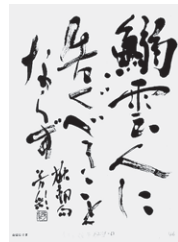 鰯雲人に
告ぐべきことな
らず
楸邨句